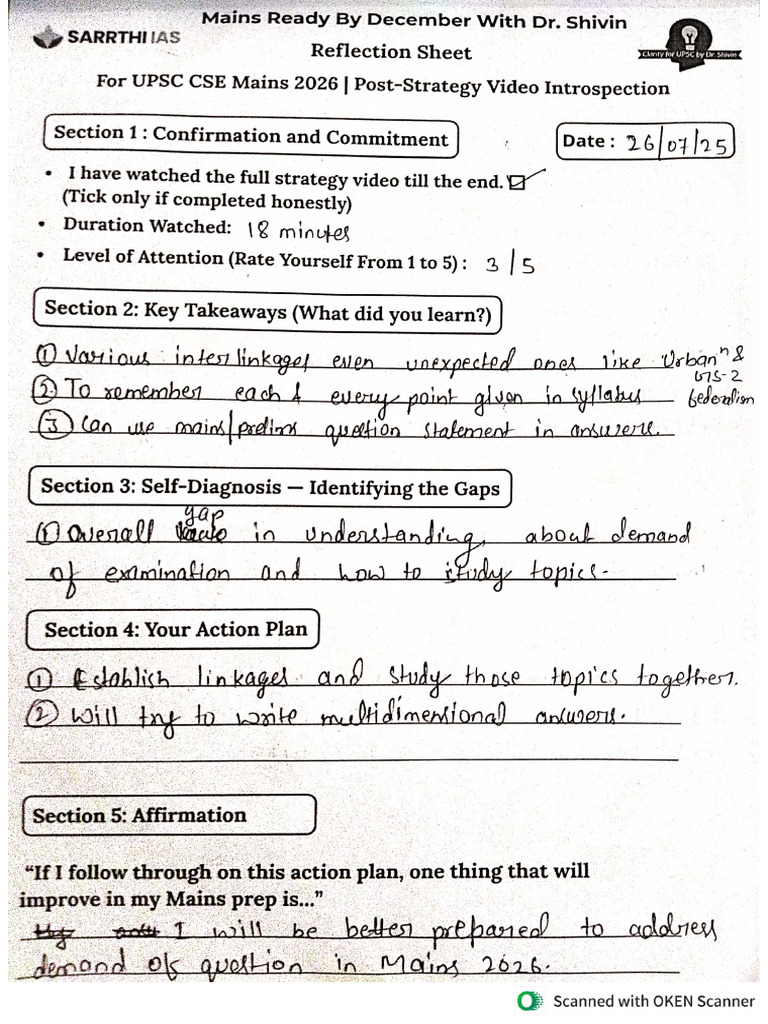 Mains Ready By December With Dr. Shivin
SARRTHI IAS
Reflection Sheet
Clarity for UPSC by Dr. Shivin
For UPSC CSE Mains 2026 | Post-Strategy Video Introspection
Section 1 : Confirmation and Commitment
Date : 26/07/25
• I have watched the full strategy video till the end. ☑
(Tick only if completed honestly)
• Duration Watched: 18 minutes
• Level of Attention (Rate Yourself From 1 to 5) : 3/5
Section 2: Key Takeaways (What did you learn?)
① Various interlinkages even unexpected ones like Urbanⁿ &
GS-2
② To remember each & every point given in syllabus federalism
③ Can use mains/prelims question statement in answers.
Section 3: Self-Diagnosis — Identifying the Gaps
gap
① Overall in understanding about demand
of examination and how to study topics.
Section 4: Your Action Plan
① Establish linkages and study those topics together.
② Will try to write multidimensional answers.
Section 5: Affirmation
“If I follow through on this action plan, one thing that will
improve in my Mains prep is...”
I will be better prepared to address
demand of question in Mains 2026.
Scanned with OKEN Scanner